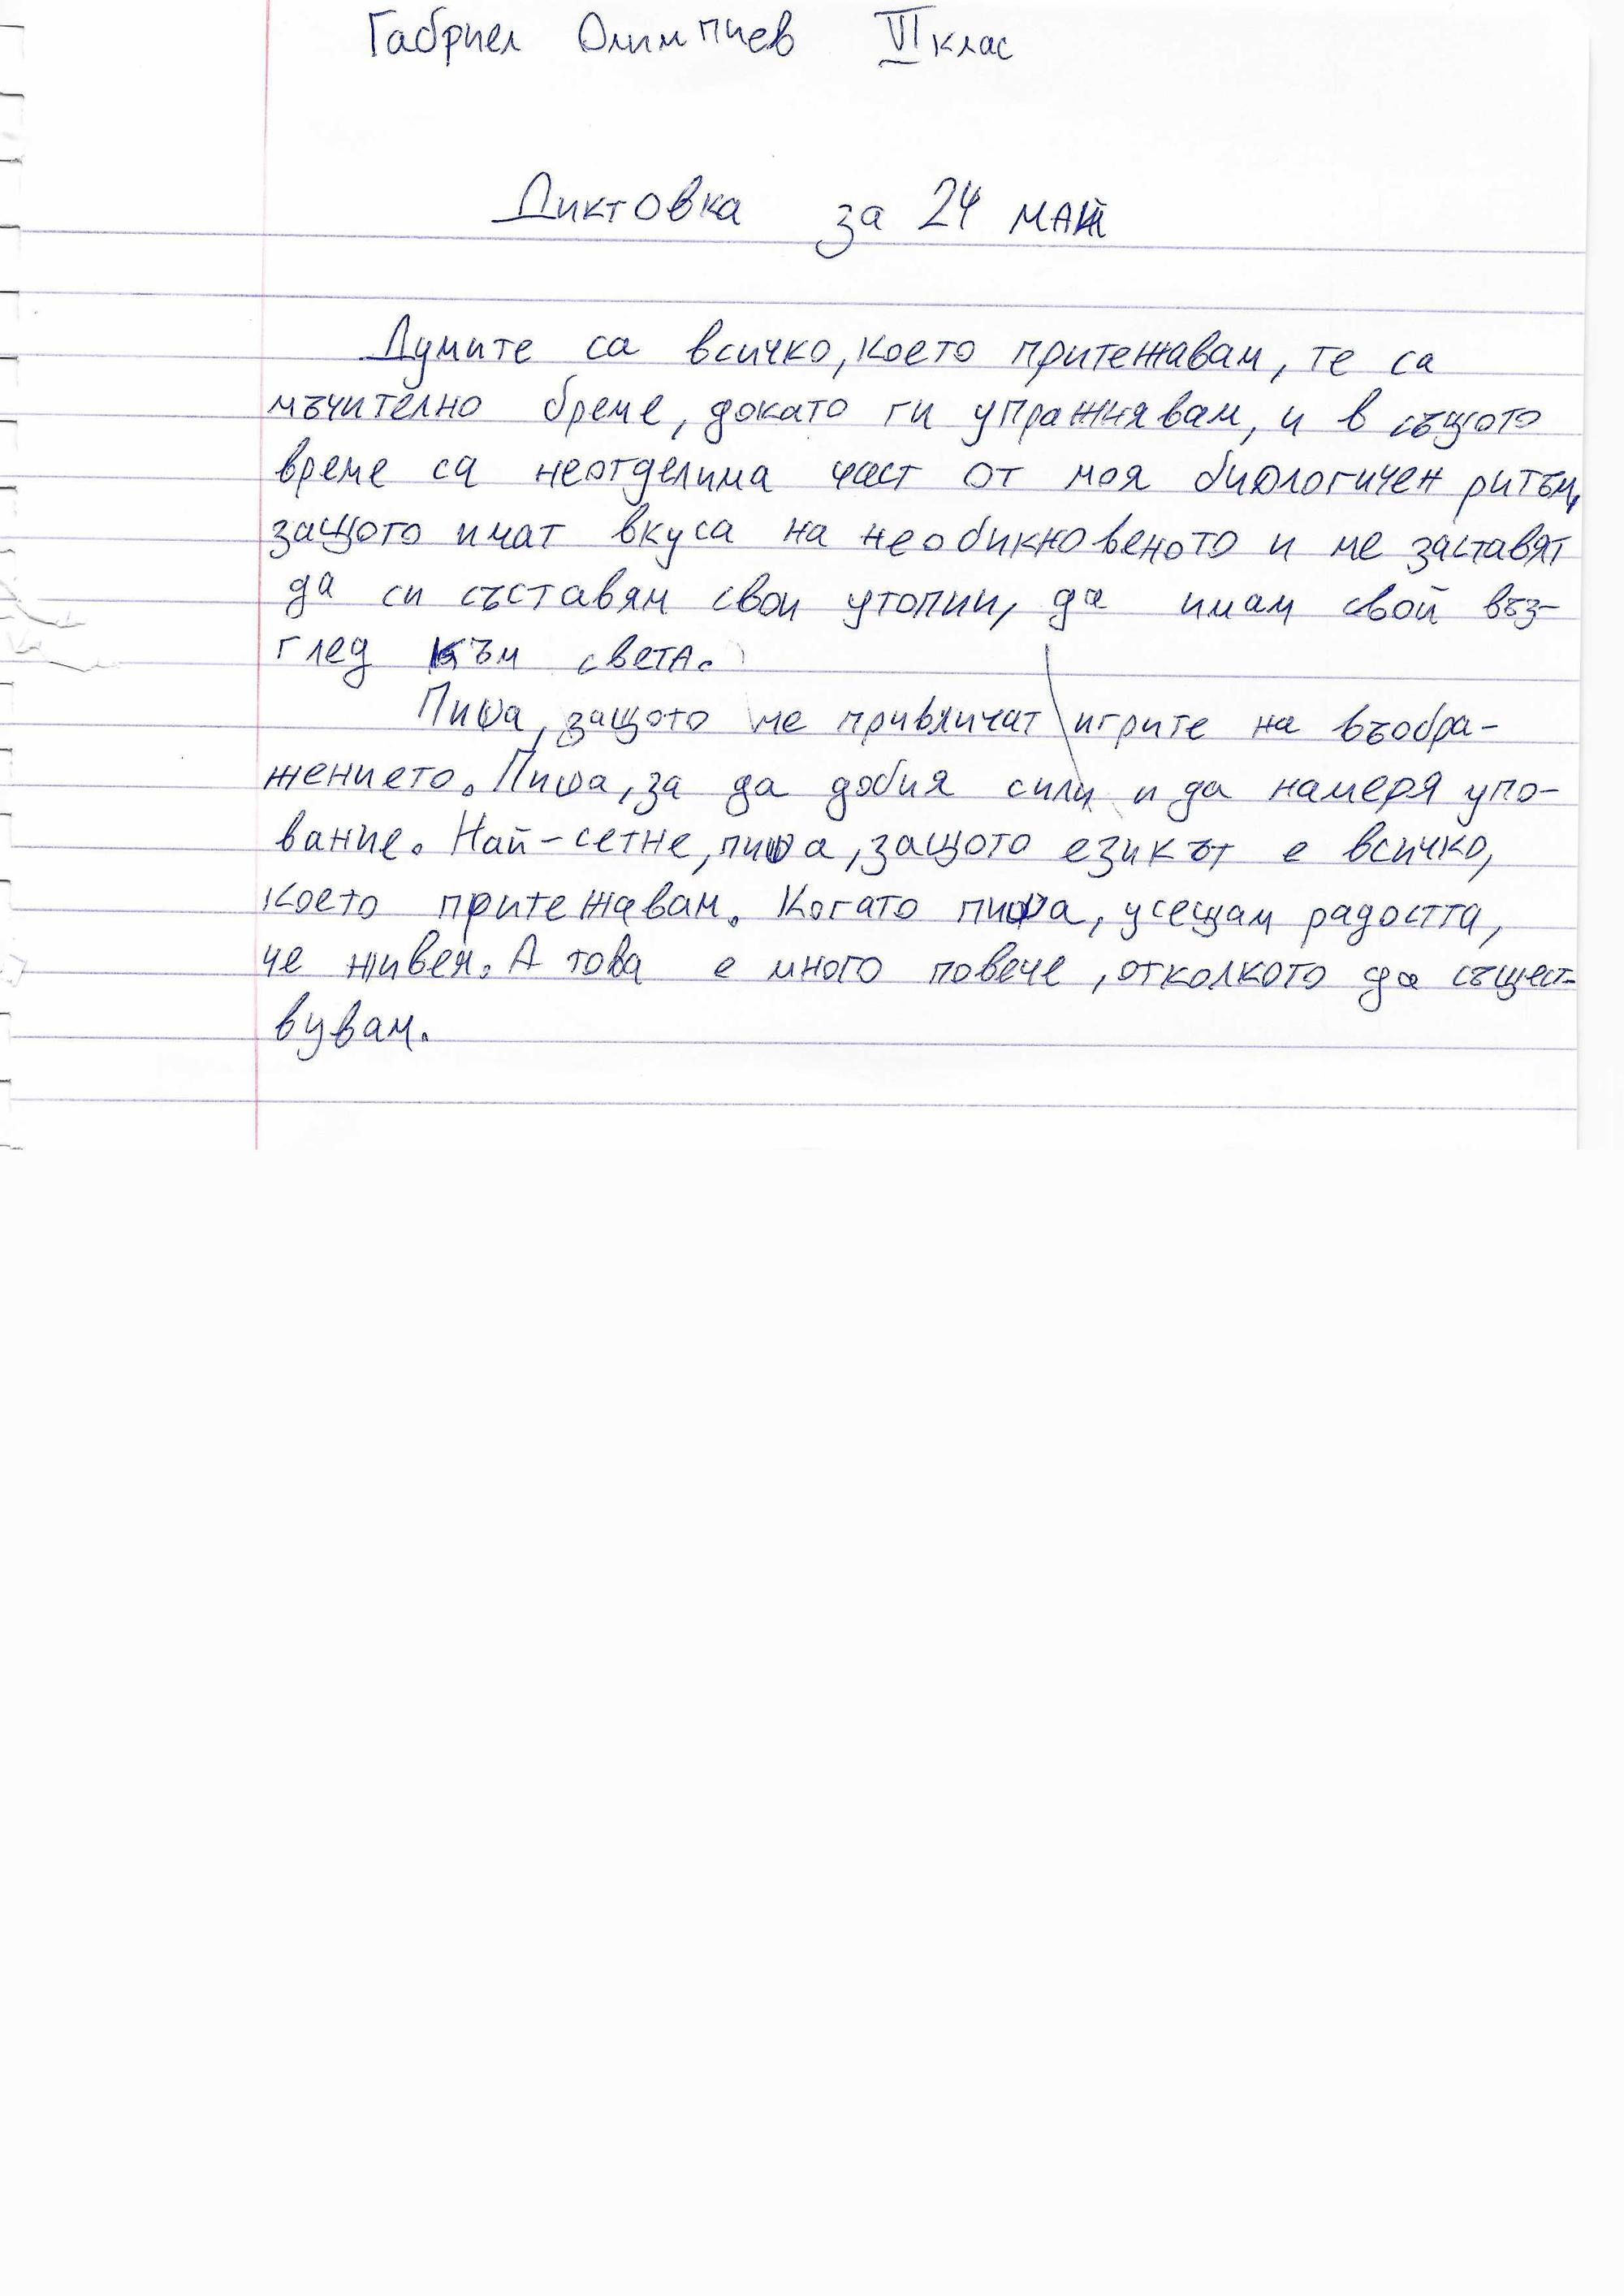 Габриел Олимпиев VI клас
Диктовка за 24 май
Думите са всичко, което притежавам, те са
мъчително бреме, докато ги упражнявам, и в същото
време са неотделима част от моя биологичен ритъм,
защото имат вкуса на необикновеното и ме заставят
да си съставям свои утопии, да имам свой въз-
глед към света.
Пиша, защото ме привличат игрите на въобра-
жението. Пиша, за да добия сили и да намеря упо-
вание. Най-сетне, пиша, защото езикът е всичко,
което притежавам. Когато пиша, усещам радостта,
че живея. А това е много повече, отколкото да същест-
вувам.